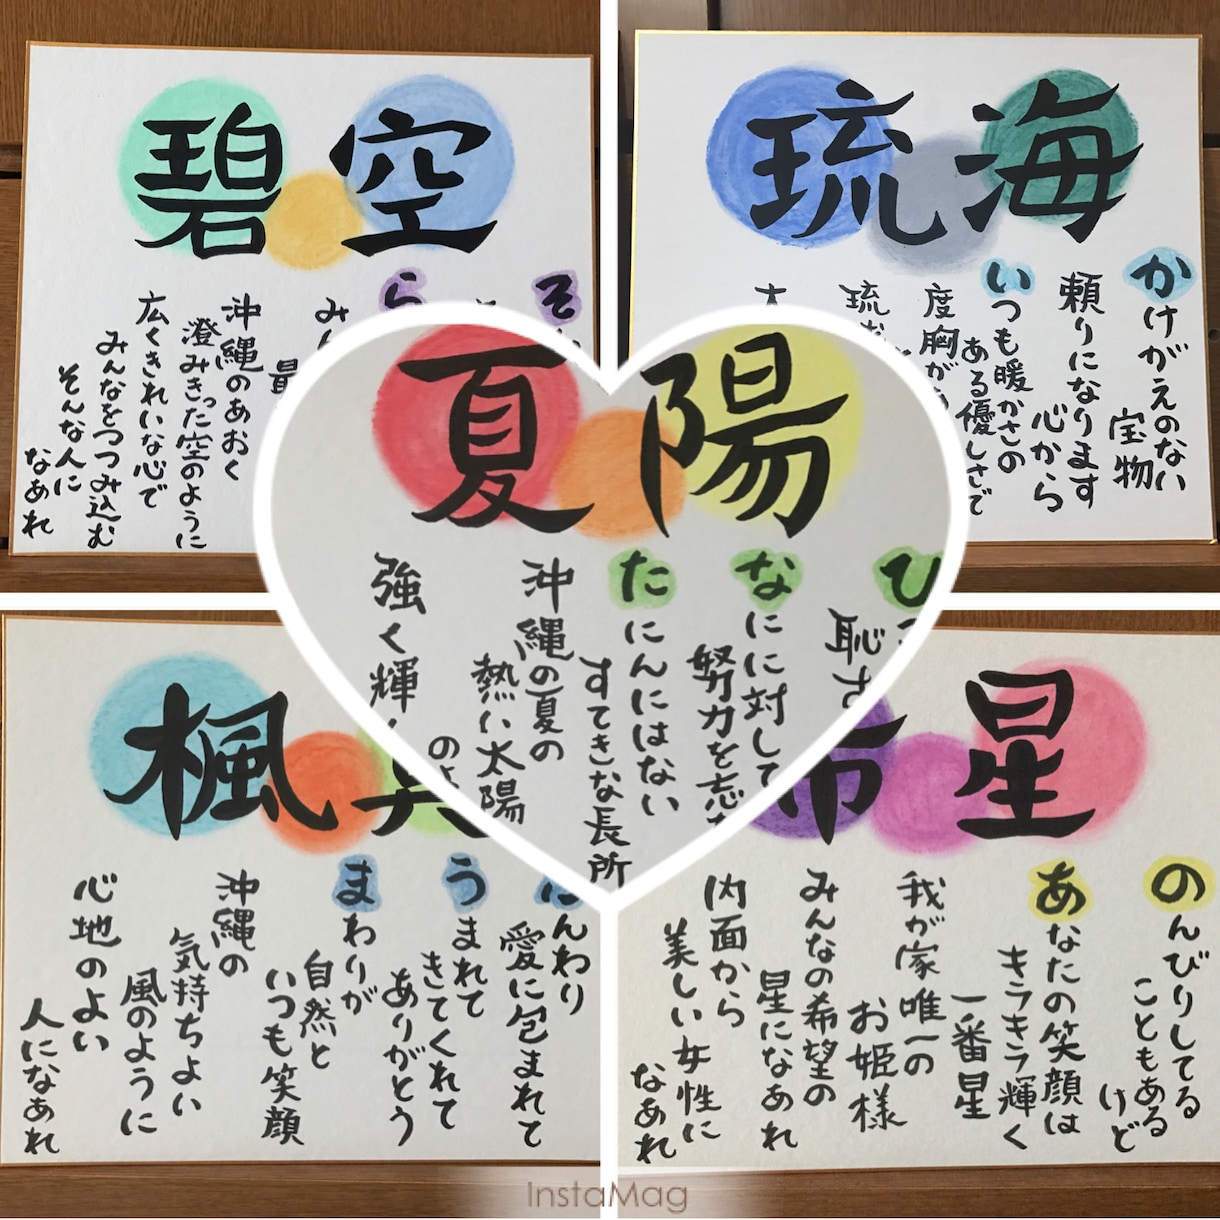 碧空
そ
ら
みん
最
沖縄のあおく
澄みきった空のように
広くきれいな心で
みんなをつつみ込む
そんな人に
なあれ
琉海
かけがえのない
宝物
頼りになります
心から
いつも暖かさの
ある優しさで
度胸が
琉
大
夏陽
ひ
恥
なにに対して
努力を忘
たにんにはない
すてきな長所
沖縄の夏の
熱い太陽
の
強く輝
楓
んわり
愛に包まれて
うまれて
きてくれて
ありがとう
まわりが
自然と
いつも笑顔
沖縄の
気持ちよい
風のように
心地のよい
人になあれ
希星
のんびりしてる
こともある
けど
あなたの笑顔は
キラキラ輝く
一番星
我が家唯一の
お姫様
みんなの希望の
星になあれ
内面から
美しい女性に
なあれ
InstaMag